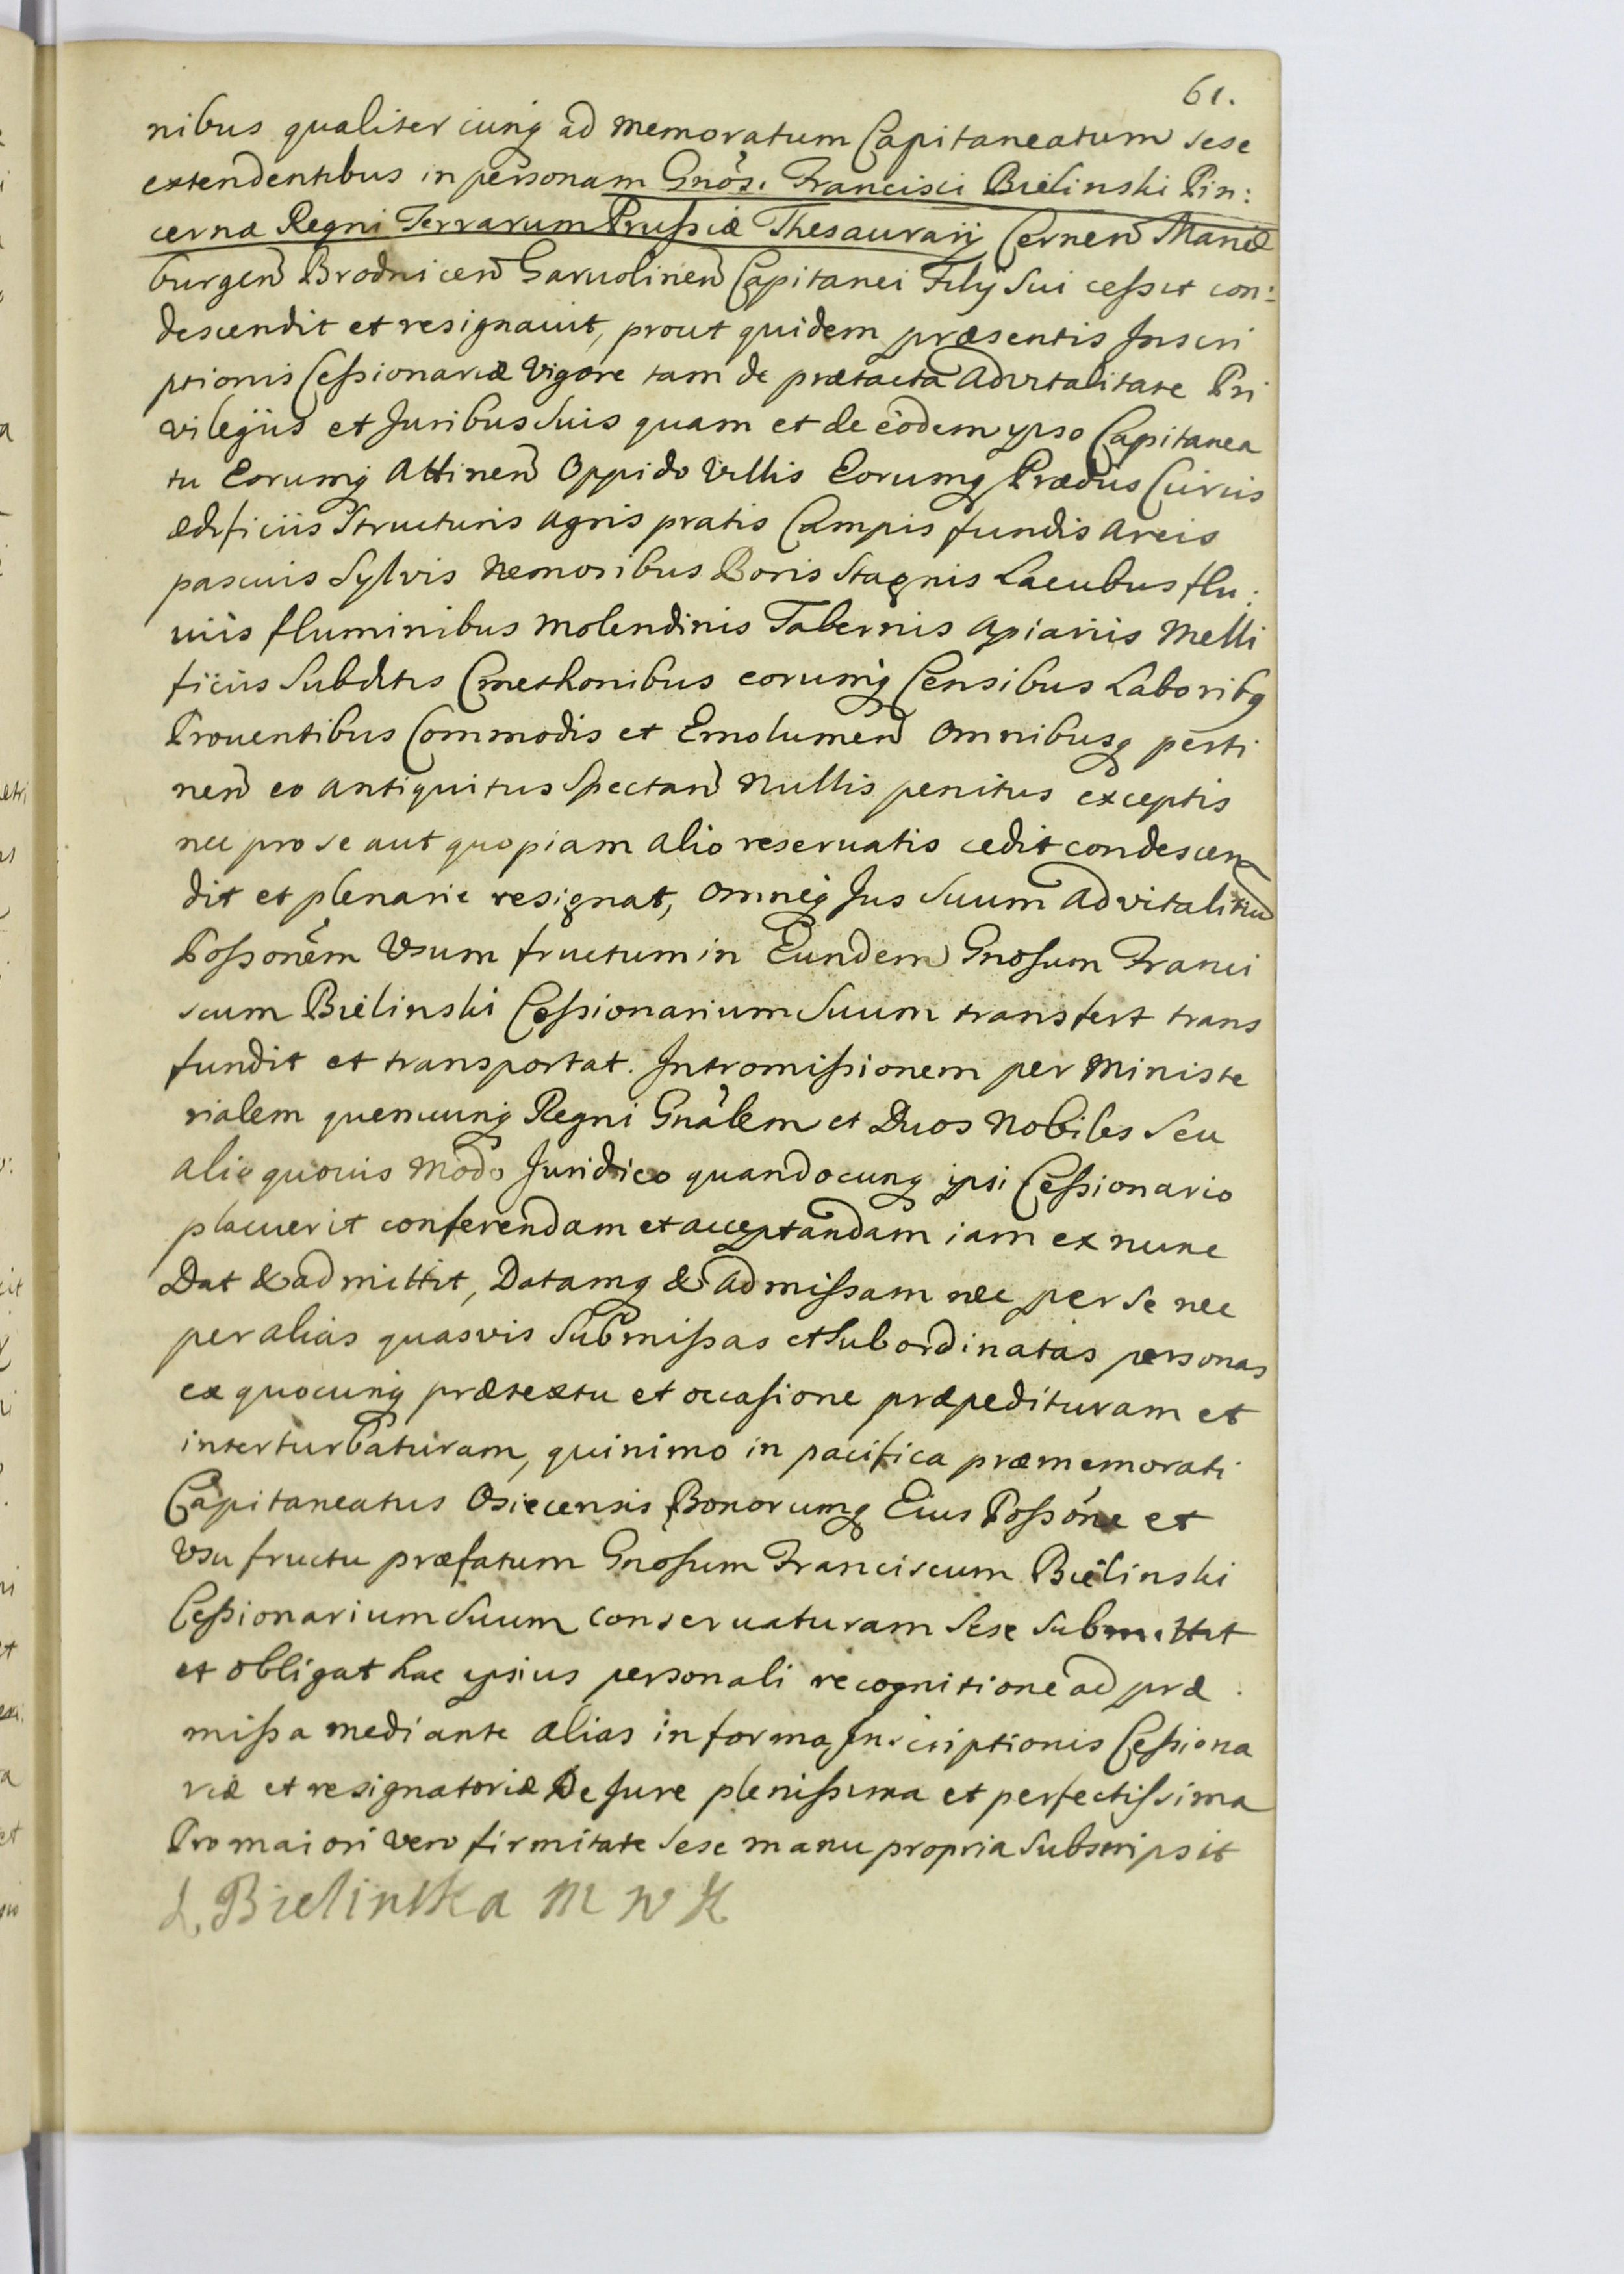 61.
nibus qualiter cunq ad memoratum Capitaneatum sese
extendentibus in personam Gnōs. Francisci Bielinski Pin:
cernæ Regni Terrarum Prussiæ Thesaurarij Cernen̄ Mariæ
burgen̄ Brodnicen̄ Garvolinen̄ Capitanei Filij Sui cessit con:
descendit et resignavit, prout quidem præsentis Inscri
ptionis Cessionariæ Vigore tam de prætacta Advitalitate Pri
vilegiis et Juribus Suis quam et de eodem ipso Capitanea
tu Eorumq Attinen̄ Oppido Villis Eorumq Prædiis Curiis
ædificiis Structuris agris pratis Campis fundis areis
pascuis Sylvis Nemoribus Boris Stagnis Lacubus flu:
viis fluminibus Molendinis Tabernis Apiariis Melli
ficiis Subditis Cmethonibus eorumq Censibus Laboribq
Proventibus Commodis et Emolumen̄ Omnibusq perti
nen̄ eo antiquitus Spectan̄ Nullis penitus exceptis
nec pro se aut quopiam alio reservatis cedit condescen
dit et plenarie resignat, omneq Jus Suum Advitalitiū
Possonēm Usum fructum in Eundem Gnosum Franci
scum Bielinski Cessionarium Suum transfert trans
fundit et transportat. Intromissionem per Ministe
rialem quemcunq Regni Gnālem et Duos Nobiles Seu
alio quovis Modo Juridico quandocunq ipsi Cessionario
placuerit conferendam et acceptandam iam ex nunc
Dat & admittit, Datamq & admissam nec per se nec
per alias quasvis Submissas et Subordinatas personas
ex quocunq prætextu et occasione præpedituram et
interturbaturam, quinimo in pacifica præmemorati
Capitaneatus Osiecensis Bonorumq Eius Possōne et
Usu fructu præfatum Gnosum Franciscum Bielinski
Cessionarium Suum conservaturam Sese Submittit
et obligat hac ipsius personali recognitione ad præ
missa mediante alias in forma Inscriptionis Cessiona
riæ et resignatoriæ De Jure plenissima et perfectissima
Pro maiori vero firmitate Sese manu propria Subscripsit
L. Bielinska M W K